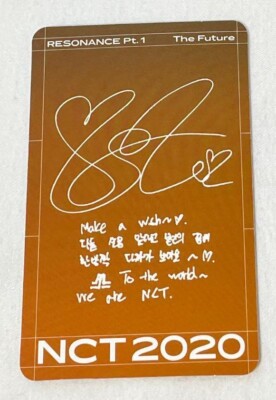 RESONANCE Pt. 1 The Future
Make a wish~♡.
다들 소원
한 발짝 다가가 보아요 ~♡.
To the world~
We are NCT.
NCT 2020